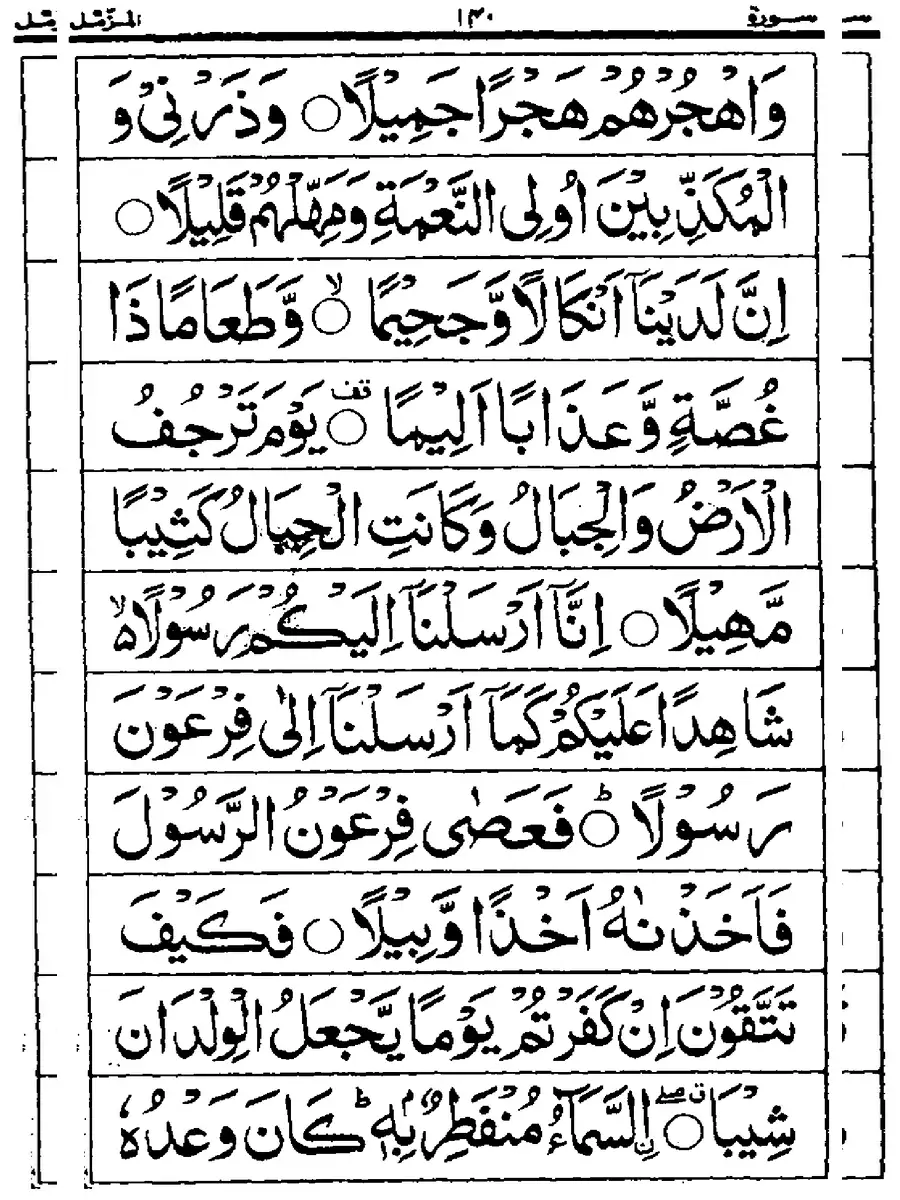 سورة ١٣٠ المزمّل
وَاهْجُرْهُمْ هَجْرًا جَمِيْلًا ○ وَذَرْنِيْ وَ
الْمُكَذِّبِيْنَ اُولِي النَّعْمَةِ وَمَهِّلْهُمْ قَلِيْلًا ○
اِنَّ لَدَيْنَآ اَنْكَالًا وَّجَحِيْمًا ○ۙ وَّطَعَامًا ذَا
غُصَّةٍ وَّعَذَابًا اَلِيْمًا ○قف يَوْمَ تَرْجُفُ
الْاَرْضُ وَالْجِبَالُ وَكَانَتِ الْجِبَالُ كَثِيْبًا
مَّهِيْلًا ○ اِنَّآ اَرْسَلْنَآ اِلَيْكُمْ رَسُوْلًا ەۙ
شَاهِدًا عَلَيْكُمْ كَمَآ اَرْسَلْنَآ اِلٰى فِرْعَوْنَ
رَسُوْلًا ○ؕ فَعَصٰى فِرْعَوْنُ الرَّسُوْلَ
فَاَخَذْنٰهُ اَخْذًا وَّبِيْلًا ○ فَكَيْفَ
تَتَّقُوْنَ اِنْ كَفَرْتُمْ يَوْمًا يَّجْعَلُ الْوِلْدَانَ
شِيْبَا ○ق صلے اۨلسَّمَآءُ مُنْفَطِرٌۢ بِهٖؕ كَانَ وَعْدُهٗ